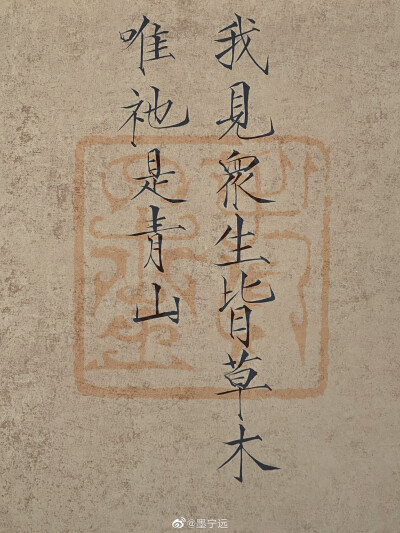 我見衆生皆草木
唯祂是青山
@墨宁远